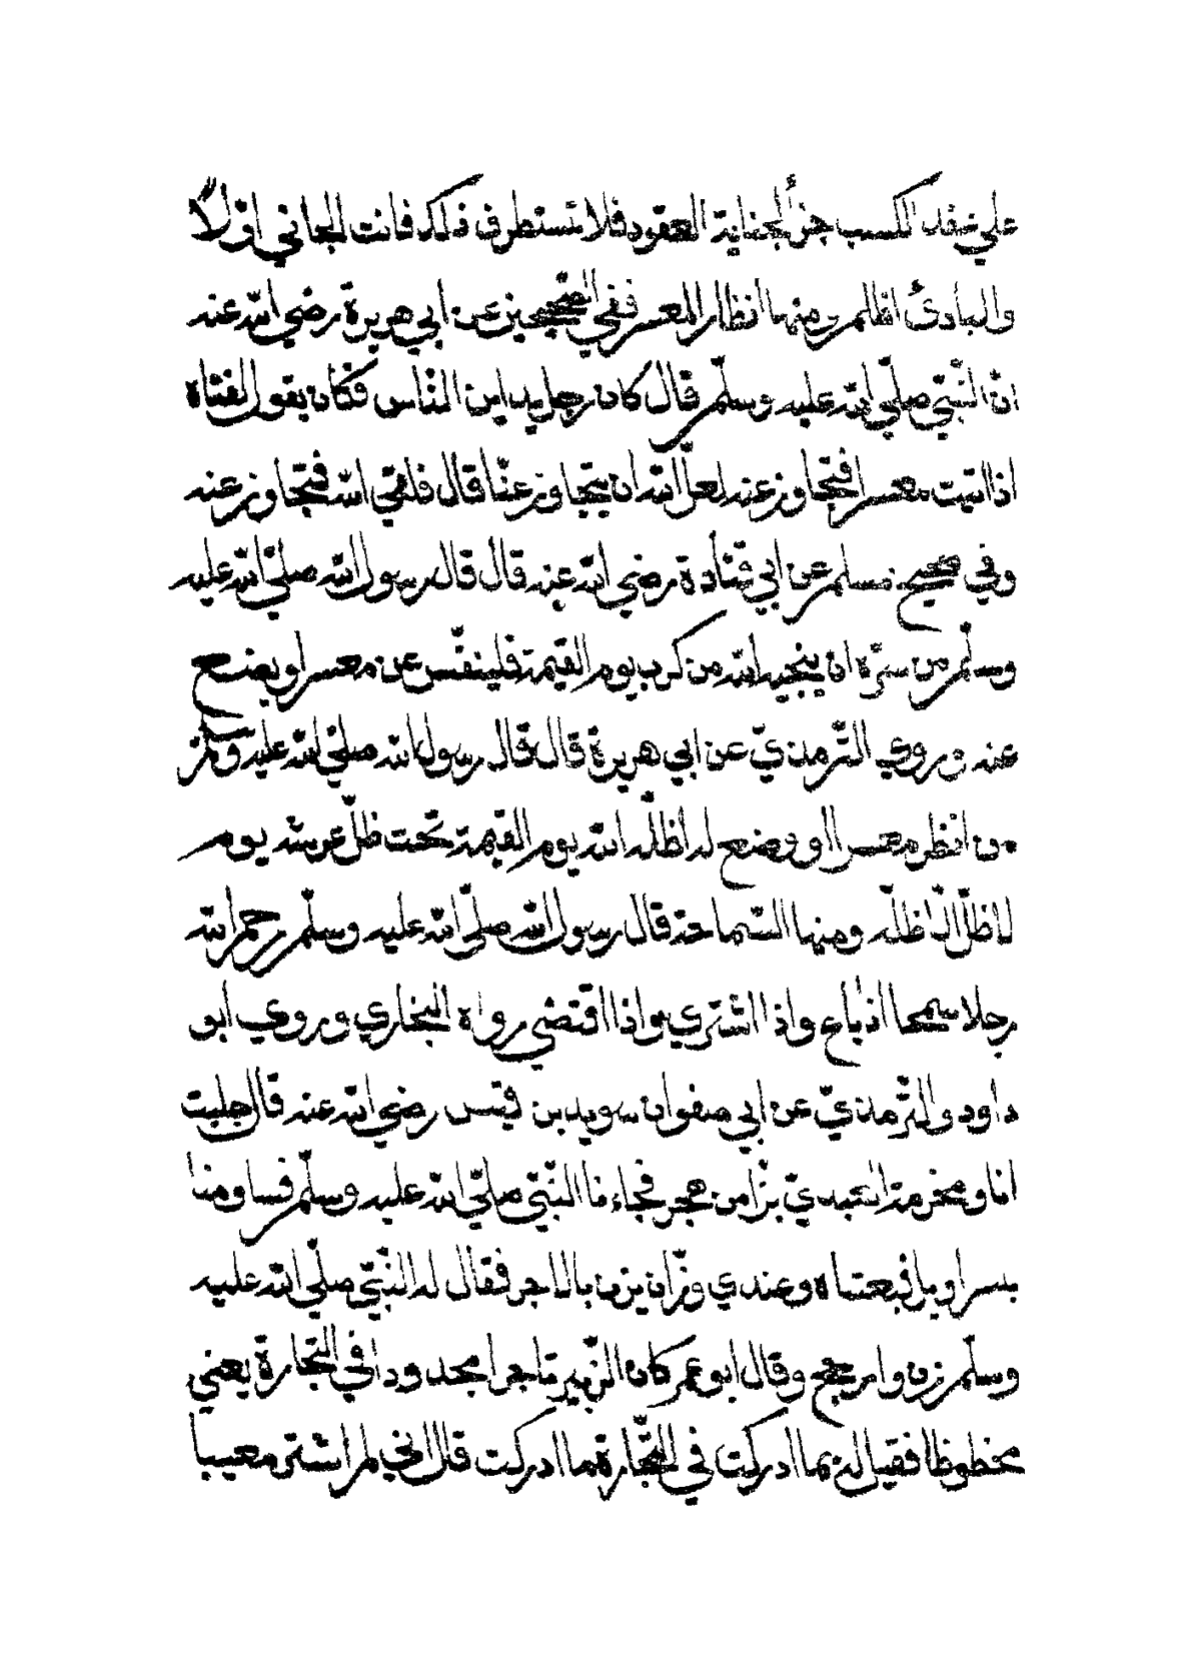 علي عقد الكسب جزأ لجناية العقود فلا تستطرف ذلك فانت الجاني اوّلًا
والبادئ اظلم ومنها انظار المعسر ففي الصّحيحين عن ابي هريرة رضي الله عنه
انّ النّبيّ صلّي الله عليه وسلّم قال كان رجل يداين النّاس فكان يقول لفتاه
اذا اتيت معسرا فتجاوز عنه لعلّ الله ان يتجاوز عنّا قال فلقي الله فتجاوز عنه
وفي صحيح مسلم عن ابي قتادة رضي الله عنه قال قال رسول الله صلّي الله عليه
وسلّم من سرّه ان ينجيه الله من كرب يوم القيمة فلينفّس عن معسر او يضع
عنه وروي التّرمذيّ عن ابي هريرة قال قال رسول الله صلّي الله عليه وسلّم
من انظر معسرا او وضع له اظلّه الله يوم القيمة تحت ظلّ عرشه يوم
لا ظلّ الّا ظلّه ومنها السّماحة قال رسول الله صلّي الله عليه وسلّم رحم الله
رجلا سمحا اذا باع واذا اشتري واذا اقتضي رواه البخاري وروي ابو
داود والتّرمذيّ عن ابي صفوان سويد بن قيس رضي الله عنه قال جلبت
انا ومخرمة العبديّ بزّا من هجر فجاءنا النّبيّ صلّي الله عليه وسلّم فساومنا
بسراويل فبعناه وعندي وزّان يزن بالاجر فقال له النّبيّ صلّي الله عليه
وسلّم زن وارجح وقال ابو عمر كان الزّبير تاجرا مجدودا في التّجارة يعني
محظوظا فقيل له بما ادركت في التّجارة ما ادركت قال انّي لم اشتر معيبا